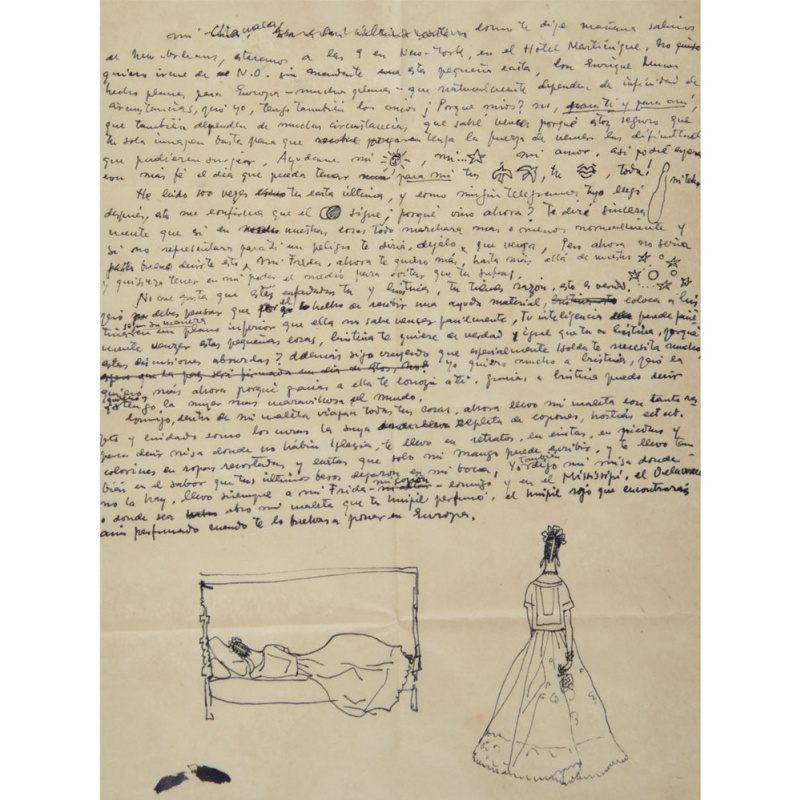 mi Chiquita como te dije mañana salimos
de New-Orleans, estaremos a las 9 en New-York, en el Hotel Martinique. No quise
irme de N.O. sin mandarte esta pequeña carta, con Enrique
hecho planes para Europa – muchos planes – que naturalmente dependen de infinidad de
circunstancias, que yo, tengo también los míos ¿Porque míos? no, para ti y para mí,
que también dependen de muchas circunstancias, que sabré vencer porqué estoy seguro que
tu sola imagen basta para que tenga la fuerza de vencer las dificultades
que pudieran surgir, Ayudame mi mi mi amor, así podré esperar
con más fé el día que pueda tener para mi tus tu toda!
He leído 100 veces tu carta última, y como ningún telegrama tuyo
después, esta me confirma que el sigue ¿porqué vino ahora? Te diré sincera
mente que si en nuestras cosas todo marchara mas o menos normalmente y
si no representara para ti un peligro te diría, déjelo, que venga, Pero ahora no sería
bueno decirte esto, mi Frida, ahora te quiero más, hasta más allá de
y quisiera tener en mi poder el medio para evitar que tu sufras.
No me gusta que estés enfadadas tu y Cristina, tu tienes razón, esto es verdad,
pero debes pensar que el hecho de recibir una ayuda material, coloca a Cris
en un plano inferior que ella no sabe vencer facilmente, Tu inteligencia puede facil
mente vencer estas pequeñas cosas, Cristina te quiere de verdad y igual que tu a Cristina, ¿porqué
estas discusiones absurdas? Además sigo creyendo que especialmente Isolda te necesita mucho,
Yo quiero mucho a Cristina,
más ahora porqué gracias a ella te conocí a ti, gracias a Cristina puedo decir
tengo la mujer mas maravillosa del mundo.
Conmigo, dentro de mi maleta viajan todas tus cosas, ahora llevo mi maleta con tanto res
peto y cuidado como los curas la suya repleta de copones, hostias ect. ect.
para decir misa donde no habían Iglesia, te llevo en retratos, en cintas, en piedras y
colorines en ropas recortadas y cartas que solo mi mango puede escribir, y te llevo tam
bién en el sabor que tus últimos besos dejaron en mi boca, Yo también digo mi misa donde
no la hay, llevo siempre a mi Frida – mi copón – conmigo y en el Mississipi, el Delaware
o donde sea abro mi maleta que tu huipil perfumó, el huipil rojo que encontrarás
aún perfumado cuando te lo vuelvas a poner en Europa.